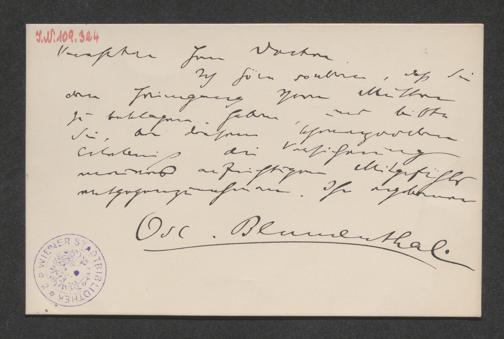 J.N. 109.324
Verehrter Herr Doctor
Ich höre soeben, daß Sie
den Heimgang Ihrer Mutter
zu beklagen haben, und bitte
Sie, an diesem schmerzvollen
Erlebnis die Versicherung
meines aufrichtigen Mitgefühls
entgegenzunehmen. Ihr ergebener
Osc. Blumenthal.
WIENER STADTBIBLIOTHEK